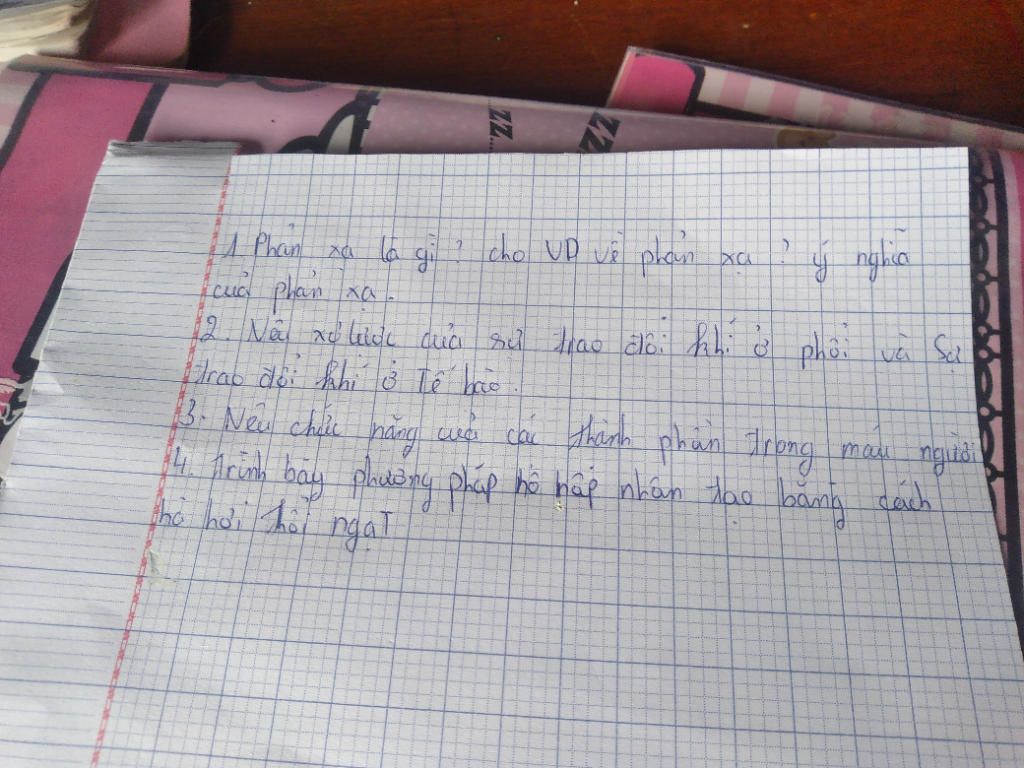 ZZ...
ZZ
1. Phản xạ là gì? cho VD về phản xạ? ý nghĩa
của phản xạ.
2. Nêu sơ lược của sự trao đổi khí ở phổi và sự
trao đổi khí ở Tế bào.
3. Nêu chức năng của các thành phần trong máu người
4. Trình bày phương pháp hô hấp nhân tạo bằng cách
hà hơi thổi ngạT